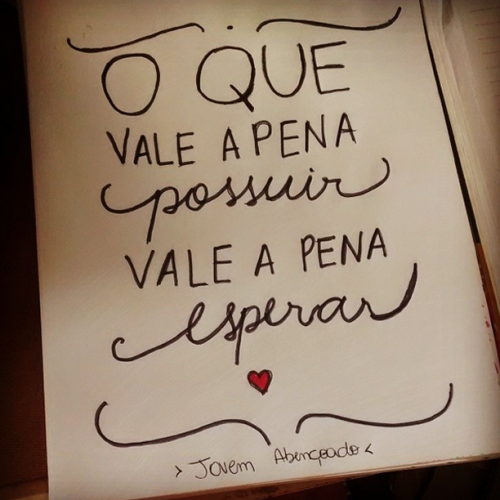 O QUE
VALE A PENA
possuir
VALE A PENA
esperar
> Jovem Abençoado <